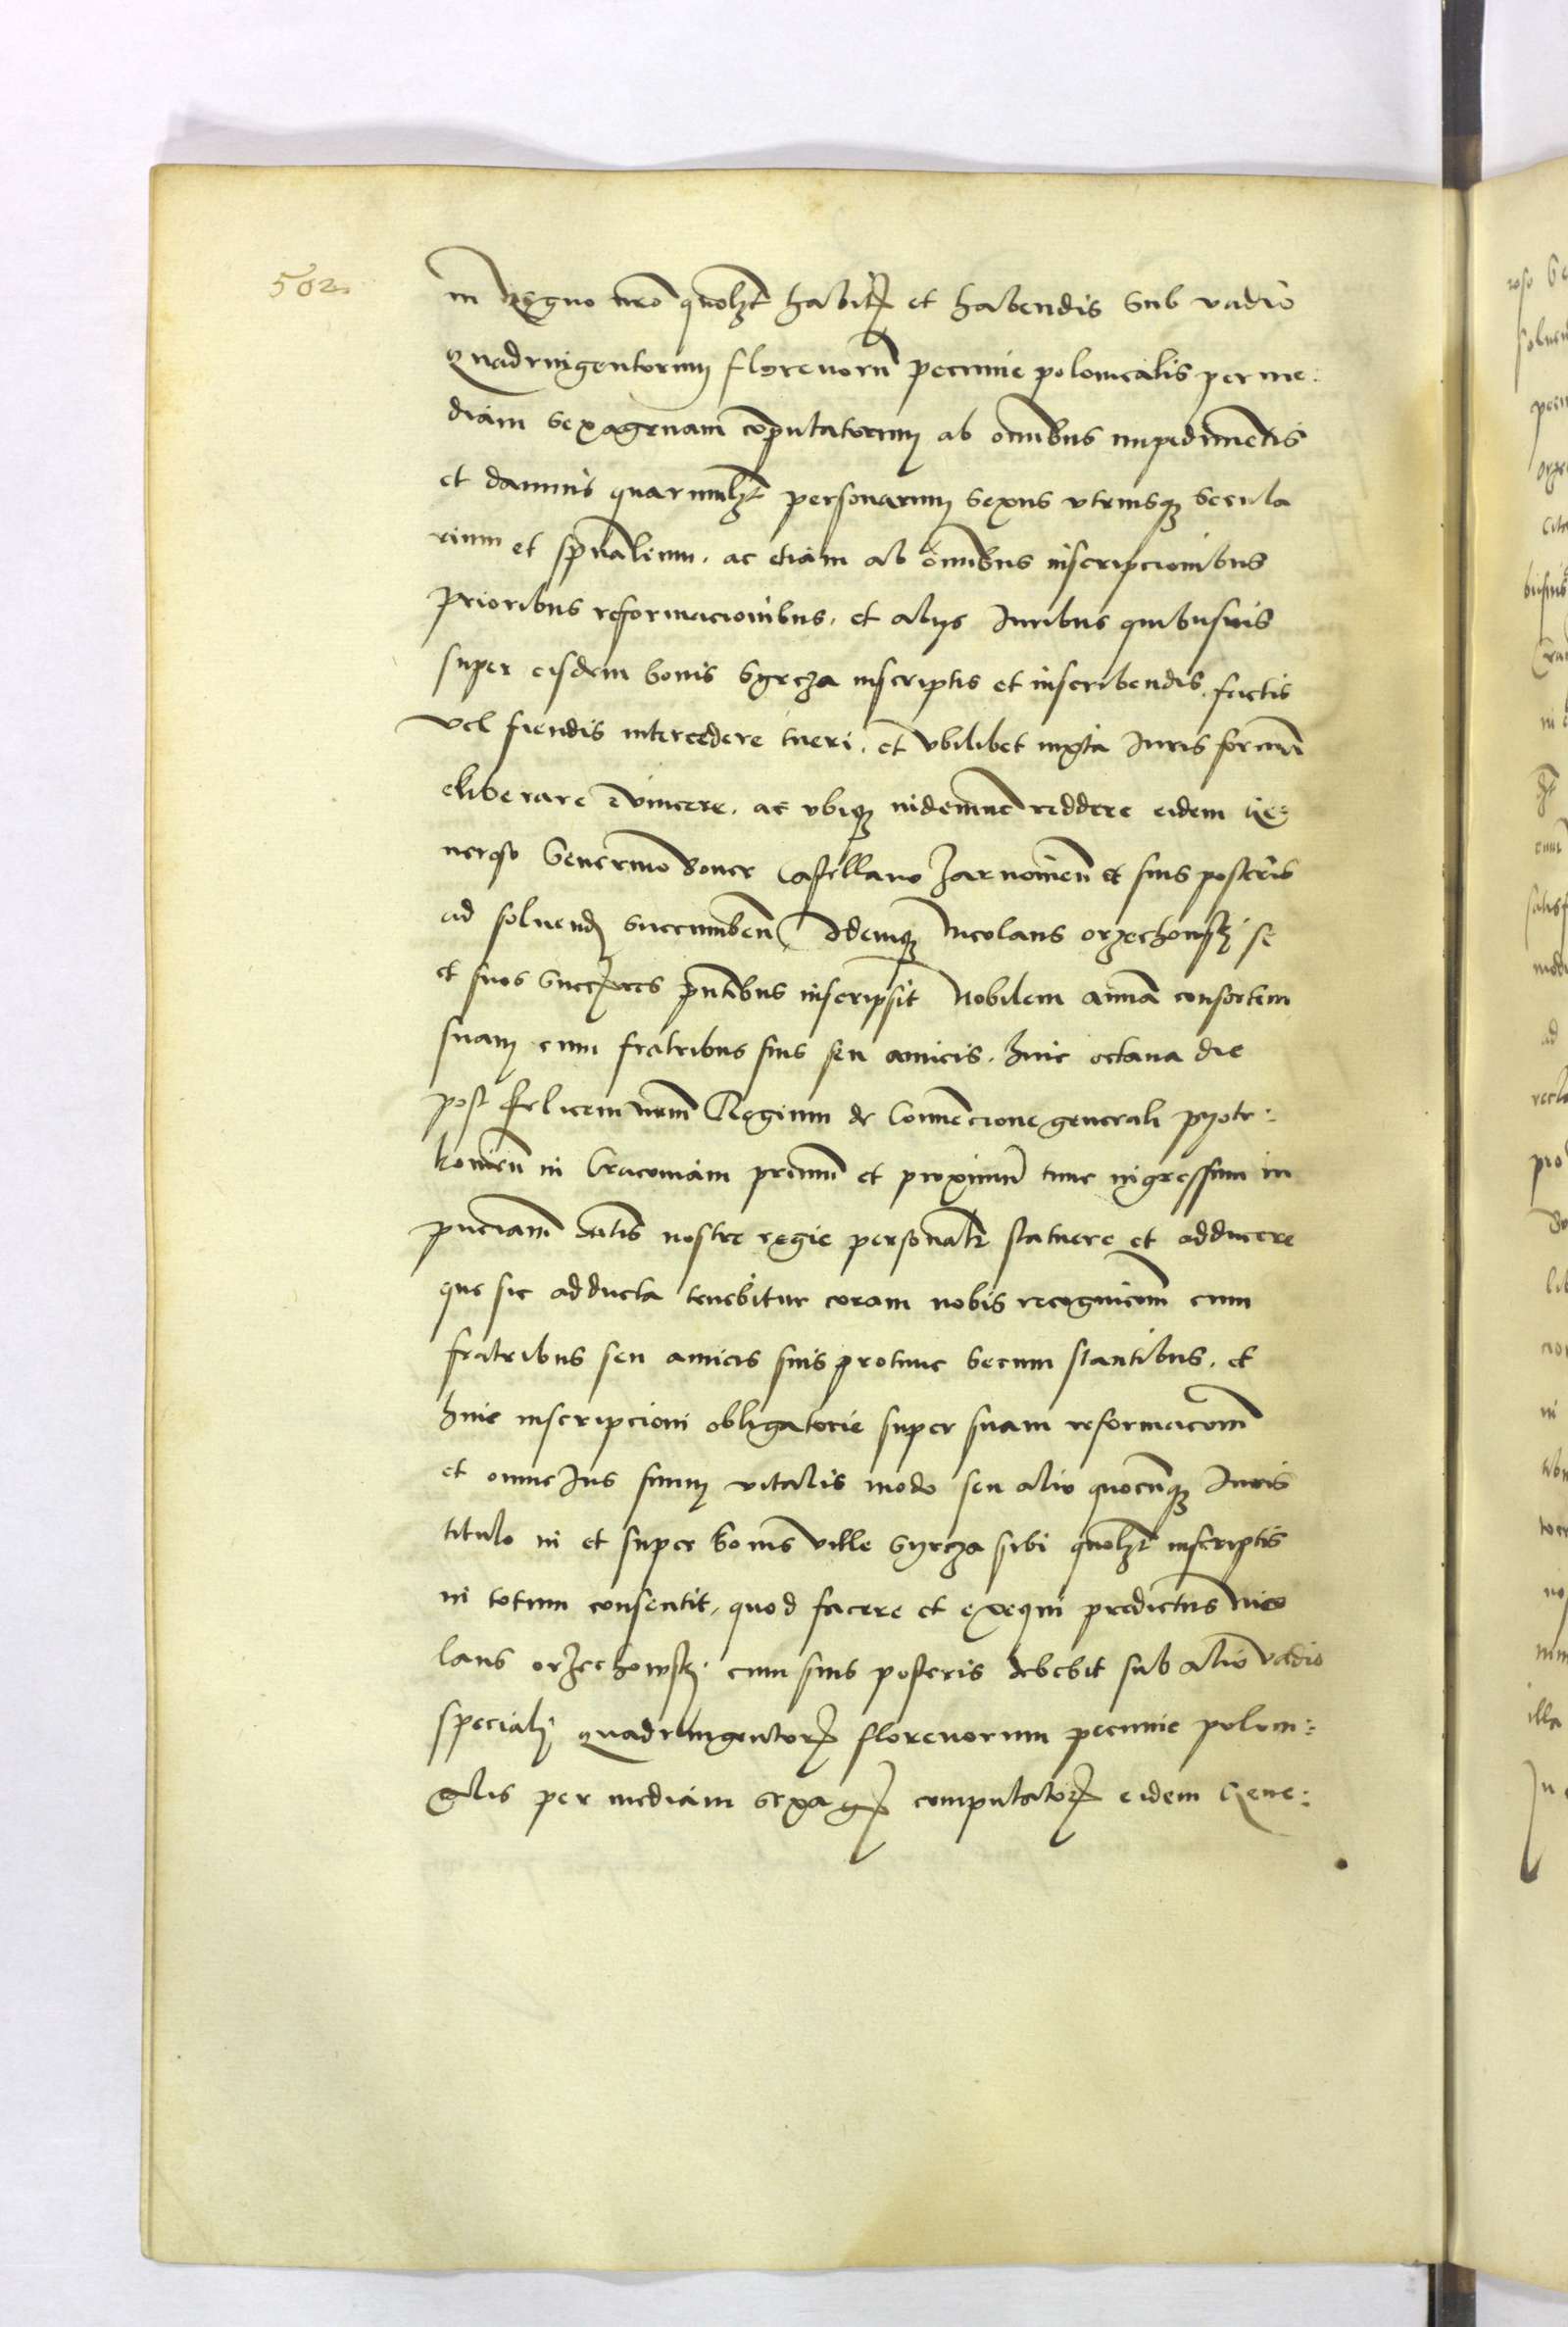 502
in Regno nro quolzt habitis et habendis Sub vadio
Quadringentorum florenorum pecunie polonicalis per me:
diam Sexagenam computatorum ab omnibus impedimentis
et damnis quarumlzt personarum Sexus vtriusque Secula
rium et spualium. ac etiam ab omnibus inscripcionibus
prioribus reformacionibus. et alijs Iuribus quibusuis
super eisdem bonis Syrcza inscriptis et inscribendis. factis
vel fiendis intercedere tueri. et vbilibet iuxta Iuris formam
eliberare Euincere. ac vbique indemne reddere eidem Ge:
neroso Seuerino Boner Castellano Zarnouien et suis posteris
ad soluend Succumben Idemque Nicolaus orzechowsky se
et suos Successores pntibus inscripsit Nobilem annam consortem
suam cum fratribus suis seu amicis. huic octaua die
post felicem nrum Regium de Conuencione generali pyotr:
kouien in Cracouiam primum et proximum tunc ingressum in
pnciam Mtis nostre regie personalr statuere et adducere
que sic adducta tenebitur coram nobis recognicom cum
fratribus seu amicis suis protunc Secum stantibus. et
huic inscripcioni obligatorie super suam reformacom
et omne Ius suum vitalis modo seu alio quocunque Iuris
titulo in et super bonis ville Syrcza sibi quolzt inscriptis
in totum consentit. quod facere et exequi predictus Nico
laus orzechowsky cum suis posteris debebit sub alio vadio
speciali quadringentorum florenorum pecunie poloni:
calis per mediam sexagenam computatorum eidem Gene: